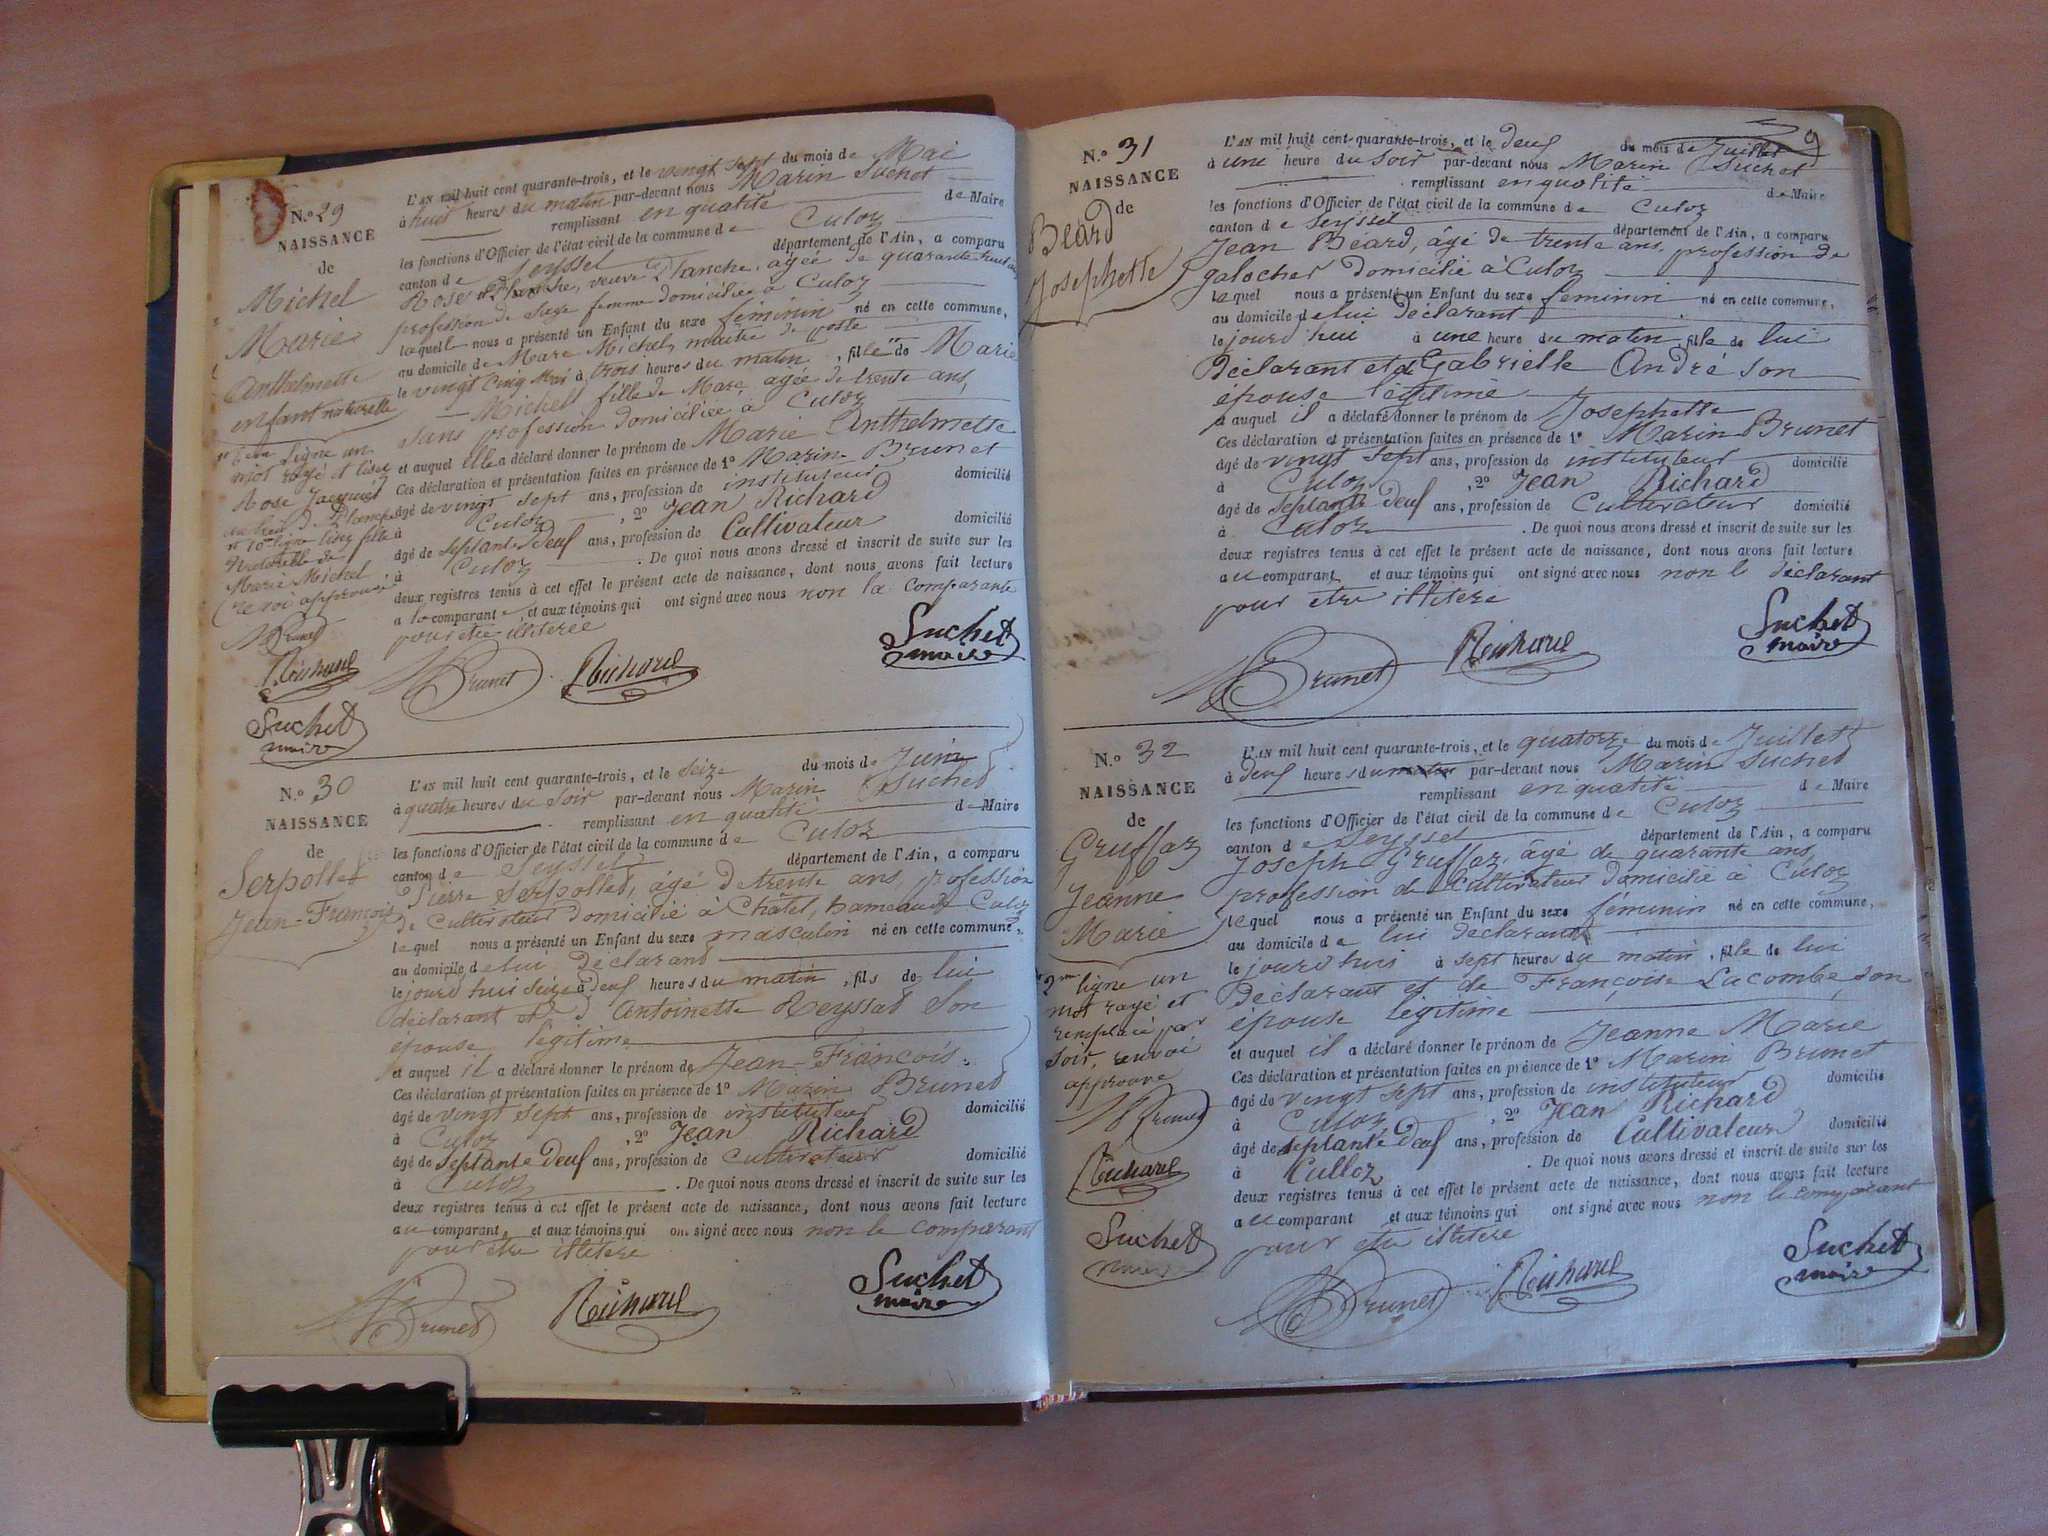 N.º 29
NAISSANCE
de
Michel
Marie
Anthelmette
enfant naturelle
6ème ligne un
mot rayé et lisez
Rose Jacquier
au lieu de Planche
et 10e ligne lisez fille
naturelle de
Marie Michel
renvoi approuvé
Brunet
Richard
Suchet
maire
L'AN mil huit cent quarante-trois, et le vingt sept du mois de Mai
à huit heures du matin par-devant nous Marin Suchet
remplissant en qualité de Maire
les fonctions d'Officier de l'état civil de la commune de Culoz
canton de Seyssel département de l'Ain, a comparu
Rose Planche, veuve Planche, âgée de quarante huit ans
profession de Sage femme domiciliée à Culoz
laquelle nous a présenté un Enfant du sexe féminin né en cette commune,
au domicile de Marc Michel, maître de poste
le vingt cinq Mai à trois heures du matin, fille de Marie
Michel fille de Marc, agée de trente ans,
sans profession domiciliée à Culoz
et auquel elle a déclaré donner le prénom de Marie Anthelmette
Ces déclaration et présentation faites en présence de 1º Marin Brunet
âgé de vingt sept ans, profession de instituteur domicilié
à Culoz, 2º Jean Richard
âgé de septante deuf ans, profession de Cultivateur domicilié
à Culoz. De quoi nous avons dressé et inscrit de suite sur les
deux registres tenus à cet effet le présent acte de naissance, dont nous avons fait lecture
a la comparante et aux témoins qui ont signé avec nous non la comparante
pour etre illiterée
Brunet Richard Suchet
maire
N.º 30
NAISSANCE
de
Serpollet
Jean-François
L'AN mil huit cent quarante-trois, et le seize du mois de Juin
à quatre heures du soir par-devant nous Marin Suchet
remplissant en qualité de Maire
les fonctions d'Officier de l'état civil de la commune de Culoz
canton de Seyssel département de l'Ain, a comparu
Pierre Serpollet, âgé de trente ans, profession
de Cultivateur domicilié à Châtel, hameau de Culoz
lequel nous a présenté un Enfant du sexe masculin né en cette commune,
au domicile de lui déclarant
le jourd'hui seize à deuf heures du matin, fils de lui
déclarant et d'Antoinette Reyssat Son
épouse légitime
et auquel il a déclaré donner le prénom de Jean-François.
Ces déclaration et présentation faites en présence de 1º Marin Brunet
âgé de vingt sept ans, profession de instituteur domicilié
à Culoz, 2º Jean Richard
âgé de Septante deuf ans, profession de Cultivateur domicilié
à Culoz. De quoi nous avons dressé et inscrit de suite sur les
deux registres tenus à cet effet le présent acte de naissance, dont nous avons fait lecture
au comparant, et aux témoins qui ont signé avec nous non le comparant
pour être illitere
Brunet Richard Suchet
maire
9
N.º 31
NAISSANCE
de
Béard
Josephette
L'AN mil huit cent-quarante-trois, et le deuf du mois de Juillet
à une heure du soir par-devant nous Marin Suchet
remplissant en qualité de Maire
les fonctions d'Officier de l'état civil de la commune de Culoz
canton de Seyssel département de l'Ain, a comparu
Jean Béard, âgé de trente ans, profession de
galocher domicilié à Culoz
lequel nous a présenté un Enfant du sexe feminin né en cette commune,
au domicile de lui déclarant
le jourd'hui à une heure du matin, fille de lui
Déclarant et de Gabrielle André son
épouse légitime
et auquel il a déclaré donner le prénom de Josephette
Ces déclaration et présentation faites en présence de 1º Marin Brunet
âgé de vingt sept ans, profession de instituteur domicilié
à Culoz, 2º Jean Richard
âgé de septante deuf ans, profession de Cultivateur domicilié
à Culoz. De quoi nous avons dressé et inscrit de suite sur les
deux registres tenus à cet effet le présent acte de naissance, dont nous avons fait lecture
au comparant et aux témoins qui ont signé avec nous non le déclarant
pour etre illitere
Brunet Richard Suchet
maire
N.º 32
NAISSANCE
de
Gruffaz
Jeanne
Marie
2me ligne un
mot rayé et
remplacé par
soir, renvoi
approuvé
Brunet
Richard
Suchet
maire
L'AN mil huit cent quarante-trois, et le quatorze du mois de Juillet
à deuf heures du matin par-devant nous Marin Suchet
remplissant en qualité de Maire
les fonctions d'Officier de l'état civil de la commune de Culoz
canton de Seyssel département de l'Ain, a comparu
Joseph Gruffaz, âgé de quarante ans,
profession de Cultivateur domicilié à Culoz
lequel nous a présenté un Enfant du sexe féminin né en cette commune,
au domicile de lui déclarant
le jourd'hui à sept heures du matin, fille de lui
Déclarant et de Françoise Lacombe son
épouse légitime
et auquel il a déclaré donner le prénom de Jeanne Marie
Ces déclaration et présentation faites en présence de 1º Marin Brunet
âgé de vingt sept ans, profession de instituteur domicilié
à Culoz, 2º Jean Richard
âgé de septante deuf ans, profession de Cultivateur domicilié
à Culloz. De quoi nous avons dressé et inscrit de suite sur les
deux registres tenus à cet effet le présent acte de naissance, dont nous avons fait lecture
au comparant et aux témoins qui ont signé avec nous non le comparant
pour etre illitere
Brunet Richard Suchet
maire